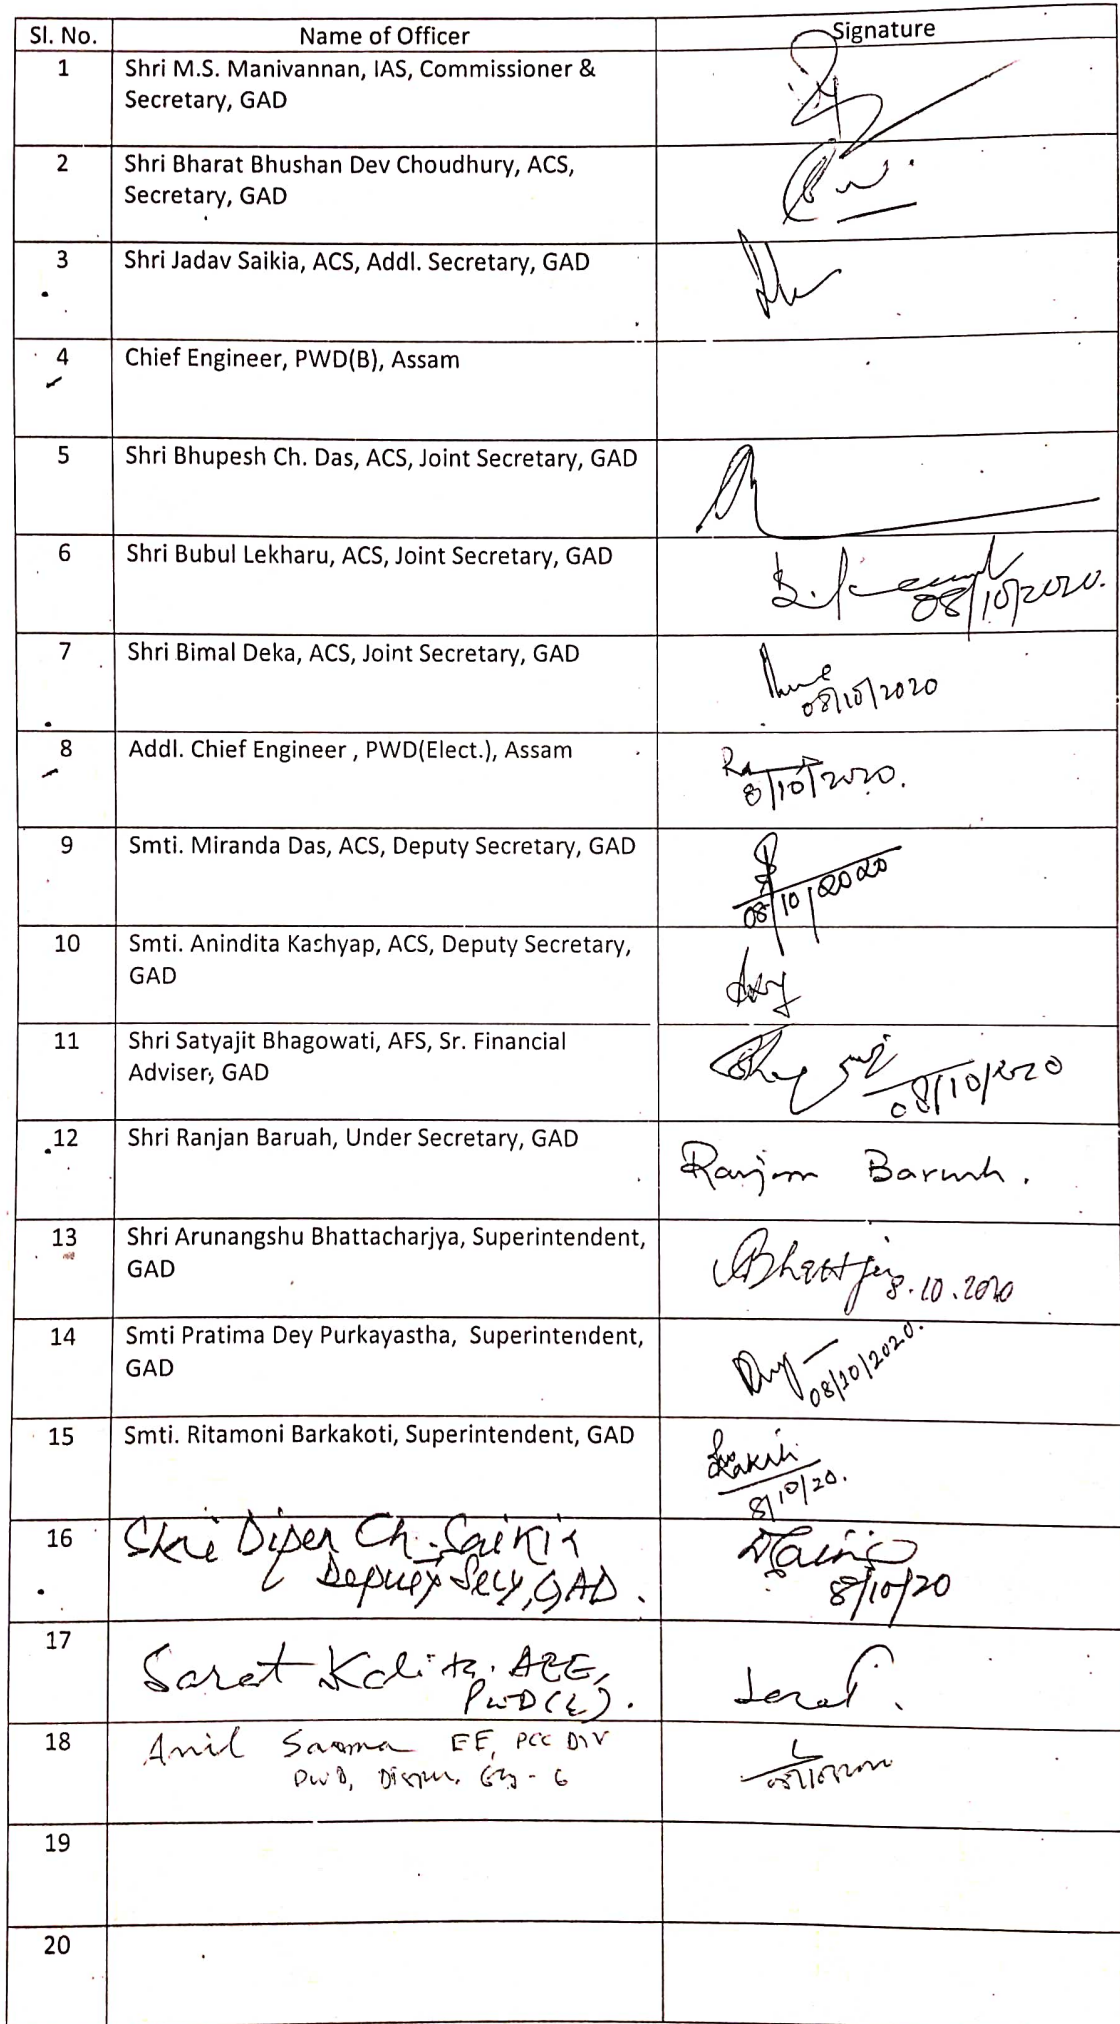 Sl. No. Name of Officer Signature
1 Shri M.S. Manivannan, IAS, Commissioner &
Secretary, GAD
2 Shri Bharat Bhushan Dev Choudhury, ACS,
Secretary, GAD
3 Shri Jadav Saikia, ACS, Addl. Secretary, GAD
4 Chief Engineer, PWD(B), Assam
5 Shri Bhupesh Ch. Das, ACS, Joint Secretary, GAD
6 Shri Bubul Lekharu, ACS, Joint Secretary, GAD
08/10/2020.
7 Shri Bimal Deka, ACS, Joint Secretary, GAD
08/10/2020
8 Addl. Chief Engineer , PWD(Elect.), Assam
8/10/2020.
9 Smti. Miranda Das, ACS, Deputy Secretary, GAD
08/10/2020
10 Smti. Anindita Kashyap, ACS, Deputy Secretary,
GAD
11 Shri Satyajit Bhagowati, AFS, Sr. Financial
Adviser, GAD
08/10/2020
12 Shri Ranjan Baruah, Under Secretary, GAD Ranjan Baruah.
13 Shri Arunangshu Bhattacharjya, Superintendent,
GAD
8.10.2020
14 Smti Pratima Dey Purkayastha, Superintendent,
GAD
08/10/2020.
15 Smti. Ritamoni Barkakoti, Superintendent, GAD
8/10/20.
16 Shri Dipen Ch. Saikia
Deputy Secy, GAD.
8/10/20
17 Sarat Kalita. AEE,
PWD(E).
18 Anil Sarma EE, PCC DIV
PWD, Dispur, Ghy-6
19
20